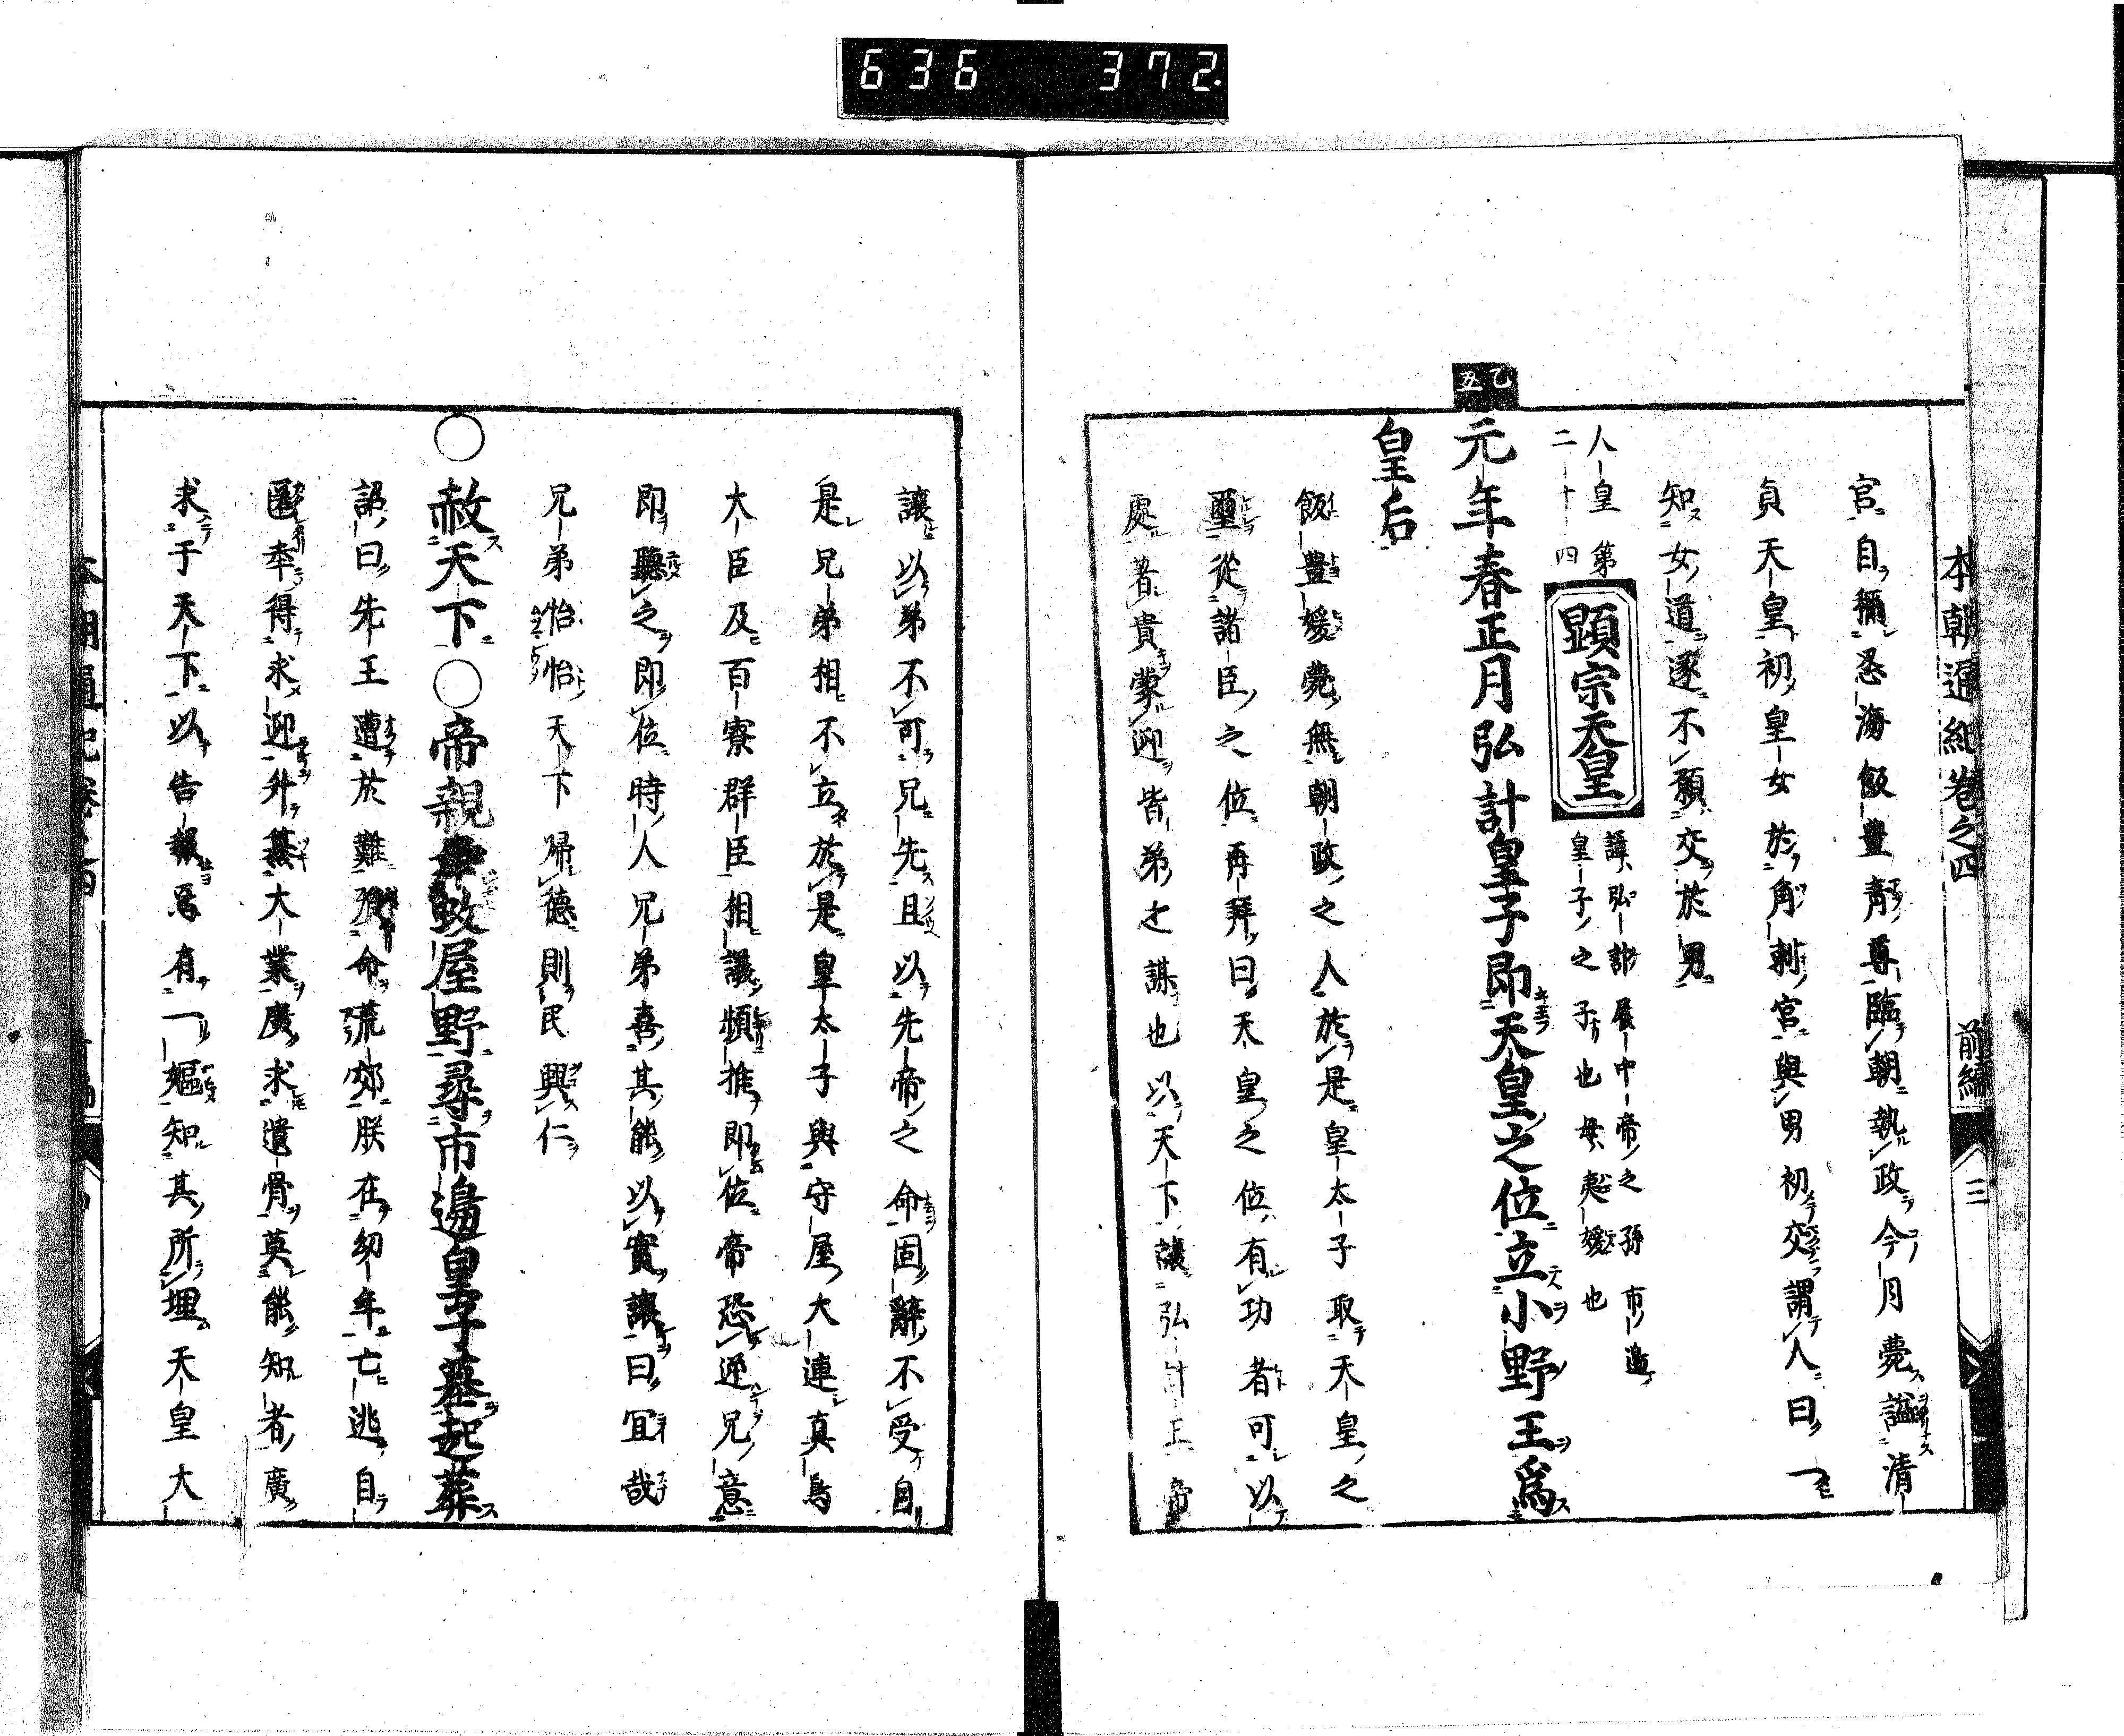 636 372
本朝通紀卷之四 前編 三
官自稱忍海飯豐青尊臨朝執政今月薨謚清
貞天皇初皇女於角刺宮與男初交謂人曰一
知女道遂不願交於男
人皇第二十四
顕宗天皇
諱弘計履中帝之孫市邊
皇子之子也母荑媛也
乙丑
元年春正月弘計皇子即天皇之位立小野王爲
皇后
飯豐媛薨無朝政之人於是皇太子取天皇之
璽從諸臣之位再拜曰天皇之位有功者可以
處著貴蒙迎皆弟之謀也以天下讓弘計王帝
讓以弟不可兄先且以先帝之命固辭不受自
是兄弟相不立於是皇太子與守屋大連真鳥
大臣及百寮群臣相議頻推即位帝恐逆兄意
即聽之即位時人兄弟喜其能以實讓曰宜哉
兄弟怡怡天下歸德則民興仁
○赦天下○帝親幸蚊屋野尋市邊皇子墓起葬
詔曰先王遭於難殞命荒郊朕在幼年亡逃自
匿牽得求迎升纂大業廣求遺骨莫能知者廣
求于天下以告報焉有一嫗知其所埋天皇大